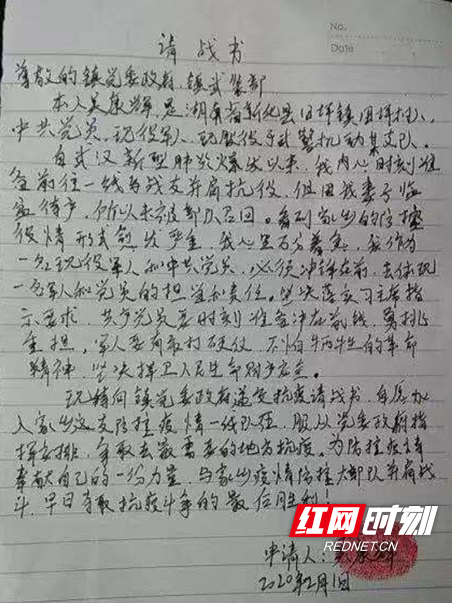 No.
Date
请战书
尊敬的镇党委政府、镇武装部
本人吴康辉,是湖南省新化县田坪镇田坪村人,
中共党员,现役军人,现服役于武警机动某支队。
自武汉新型肺炎爆发以来,我内心时刻准
备前往一线与战友并肩抗疫,但因我妻子临
产待产,所以未被部队召回。看到家乡的防控
疫情形式愈发严重,我心里万分着急,我作为
一名现役军人和中共党员,必须冲锋在前,去体现
一名军人和党员的担当和责任。坚决落实习主席指
示要求,共产党员要时刻准备冲在前线,勇挑
重担,军人要有敢打硬仗,不怕牺牲的革命
精神,坚决捍卫人民生命财产安全。
现特向镇党委政府递交抗疫请战书,自愿加
入家乡这支防控疫情一线队伍,服从党委政府指
挥安排,争取去最需要的地方抗疫。为防控疫情
奉献自己的一份力量,与家乡疫情防控大部队并肩战
斗,早日夺取抗疫斗争的最后胜利!
申请人:吴康辉
2020年2月1日
红网时刻
REDNET.CN